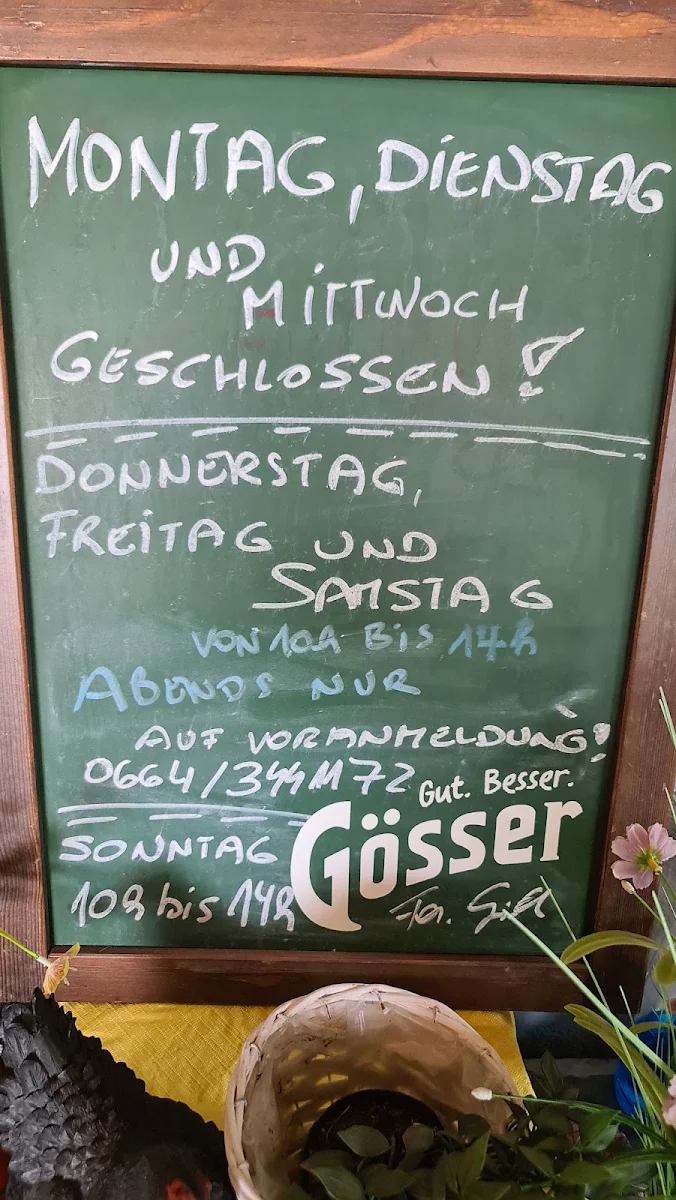 MONTAG, DIENSTAG
UND
MITTWOCH
GESCHLOSSEN!
DONNERSTAG,
FREITAG UND
SAMSTAG
VON 10h BIS 14h
ABENDS NUR
AUF VORANMELDUNG!
0664/3441172
Gut. Besser.
Gösser
SONNTAG
10h bis 14h